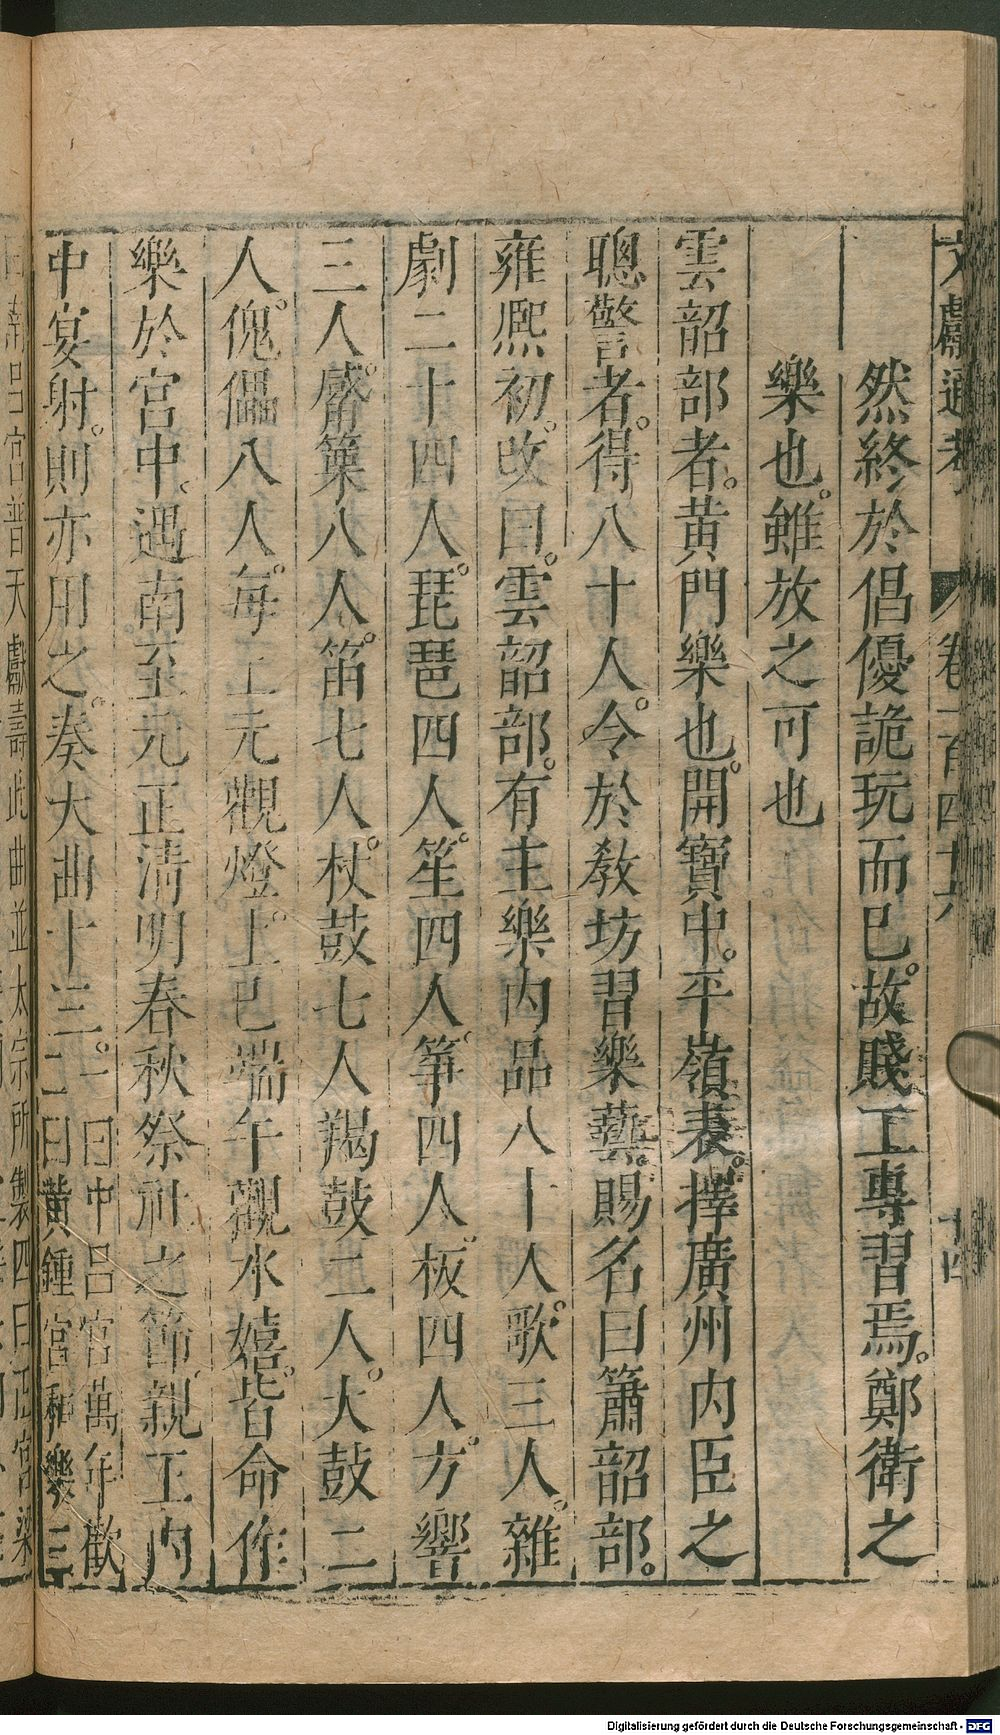 文獻通考 卷一百四十六 十四
然終於倡優詭玩而已。故賤工專習焉。鄭衛之
樂也。雖放之可也
雲韶部者。黃門樂也。開寶中。平嶺表。擇廣州內臣之
聰警者。得八十人。令於教坊習樂藝。賜名曰簫韶部。
雍熙初。改曰。雲韶部。有主樂內品八十人。歌三人。雜
劇二十四人。琵琶四人。笙四人。箏四人。板四人。方響
三人。觱篥八人。笛七人。杖鼓七人羯鼓二人。大鼓二
人。傀儡八人。每上元觀燈。上巳端午觀水嬉。皆命作
樂於宮中。遇南至元正清明春秋祭社之節。親王內
中宴射。則亦用之。奏大曲十三。一曰中呂宮萬年歡
二曰黃鍾宮和樂三
宮普天獻壽此曲並太宗所製四曰正宮梁
Digitalisierung gefördert durch die Deutsche Forschungsgemeinschaft - DFG